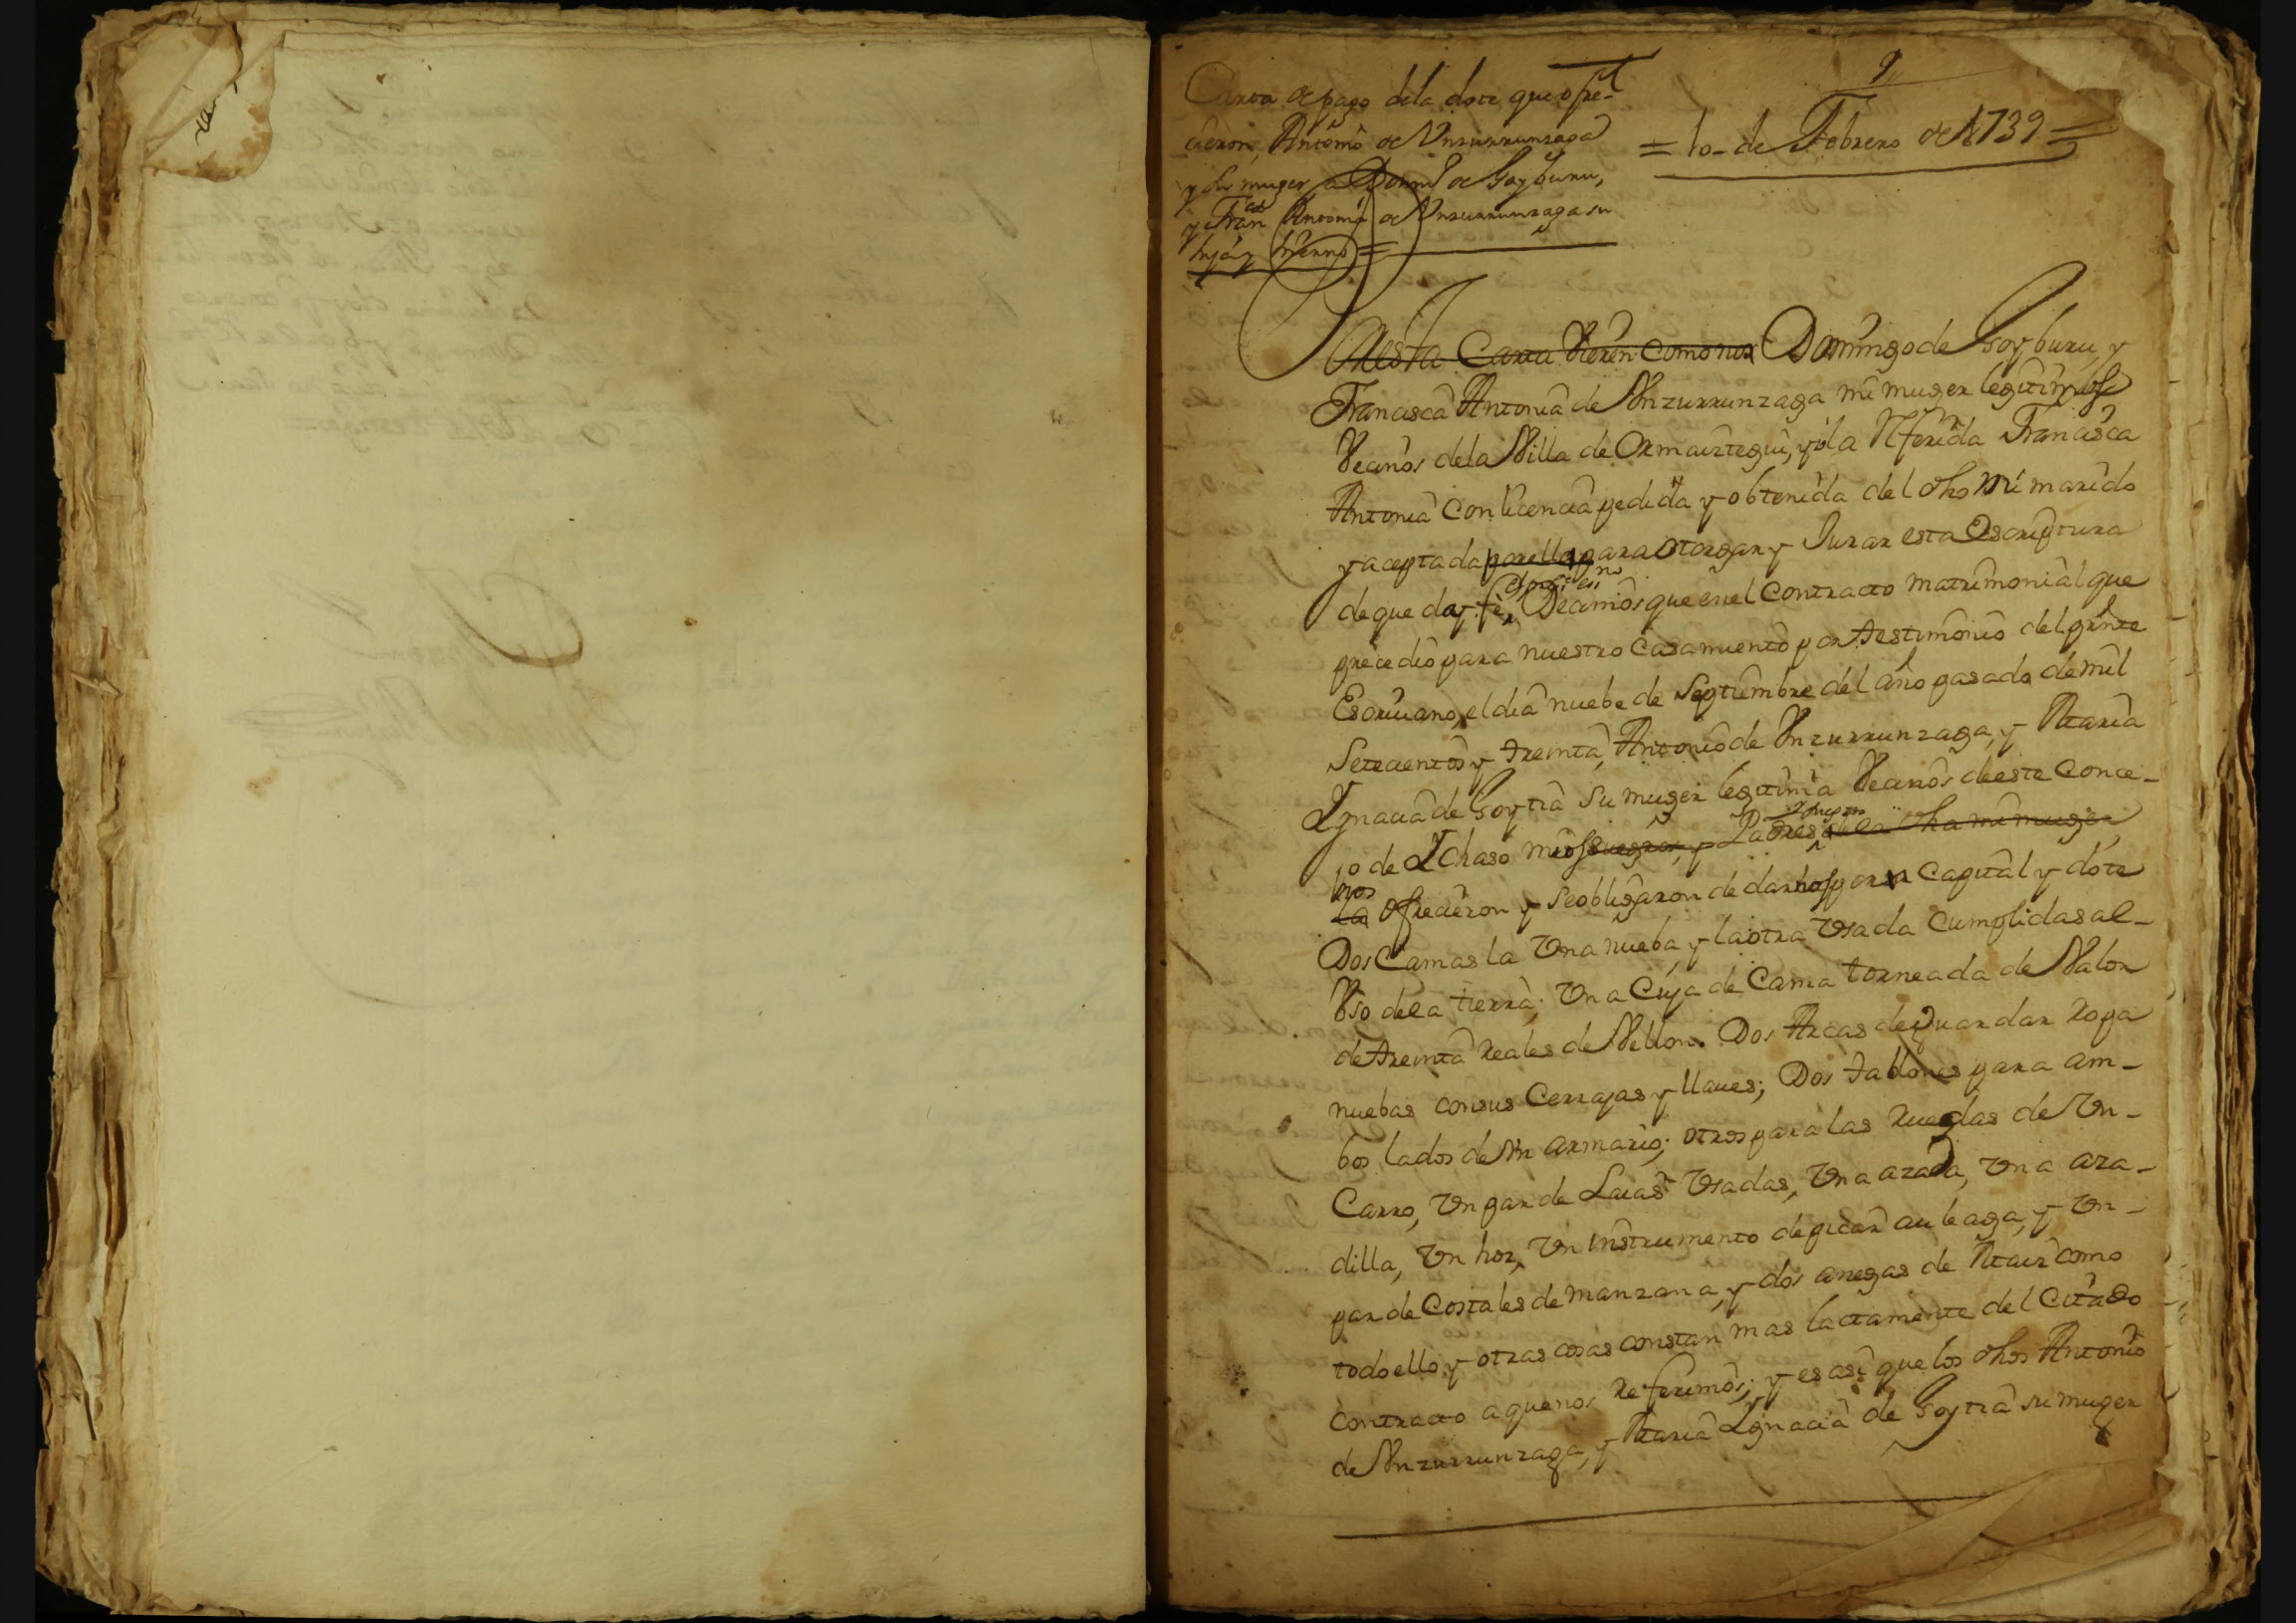 Carta de pago dela dote que ofre-
cieron, Antonio de Vnzurrunzaga
y su muger a Dom.º de Goyburu,
y Fran.ca Antonia de Vnzurrunzaga su
hija, y hierno =
9
= 10 - de Febrero de 1739 =
esta Carta Vieren como nos Domingo de Goyburu, y
Francisca Antonia de Vnzurrunzaga mi muger legitima
Vecinos dela Villa de Ormaiztegui, yo la Referida Francisca
Antonia con licencia pedida y obtenida del dho mi marido
y aceptada por ella para otorgar y Jurar esta Escriptura
de que doy fe, Decimos que en el Contracto matrimonial que
precedio para nuestro Casamiento por testimonio del prnte
Escriuano, el dia nuebe de Septiembre del año pasado de mil
Setecientos y treinta, Antonio de Vnzurrunzaga, y Maria
Ygnacia de Goytia su muger legitima Vecinos de este Conce-
jo de Ychaso mios suegros, y Padres dela dha mi muger
nos
la ofrecieron y se obligaron de darnos por Capital y dote
Dos Camas la Vna nueba, y la otra Vsada Cumplidas al-
Vso dela tierra; Vna Cuja de Cama torneada de Valor
de treinta Reales de Vellon. Dos Arcas de guardar ropa
nuebas con sus Cerrajas y llaues; Dos tablones para am-
bos lados de Vn armario; otros para las Ruedas de Vn-
Carro, Vn par de Laias Vsadas, Vna azada, Vna aza-
dilla, Vn hoz, Vn instrumento de picar aulaga, y Vn-
par de Costales de manzana, y dos anegas de Maiz como
todo ello y otras cosas constan mas lactamente del Citado
contracto a que nos referimos; y es asi que los dhos Antonio
de Vnzurrunzaga, y Maria Ygnacia de Goytia su muger